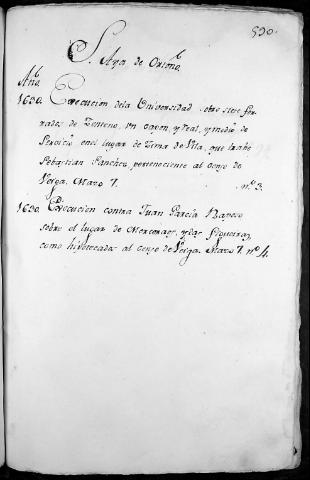 530.
S. Aya de Ortoño.
Año.
1630. Execucion dela Universidad sobre siete fer-
rados de Zenteno, un capon, y Real, y medio de
Servicio en el lugar de Zima de Vila, que trahe
Sebastian Sanchez, perteneciente al censo de
Verga. Mazo 7. n.º 3.
1630. Execucion contra Juan Garcia
sobre el lugar de y das Figueiras,
como hipotecadas al censo de Verga. Mazo 7. nº 4.